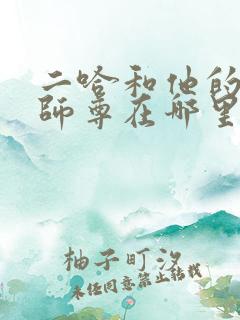 二哈和他的
師尊在哪里
柚子町汐
未经同意禁止转载